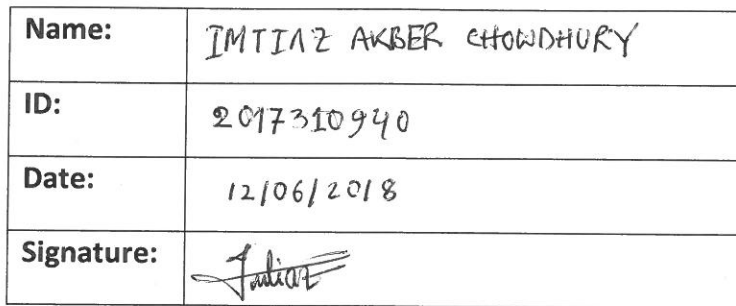 Name: IMTIAZ AKBER CHOWDHURY
ID: 2017310940
Date: 12/06/2018
Signature: Imtiaz